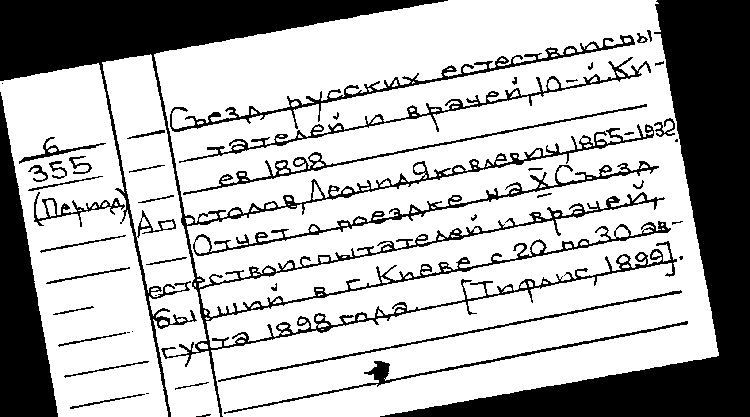 Съезд русских естествоиспы-
тателей и врачей, 10-й. Ки-
ев 1898
6
355
(Период)
Апостолов, Леонид Яковлевич, 1865-1932.
Отчет о поездке на X Съезд
естествоиспытателей и врачей,
бывший в г. Киеве с 20 по 30 ав-
густа 1898 года. [Тифлис, 1899].